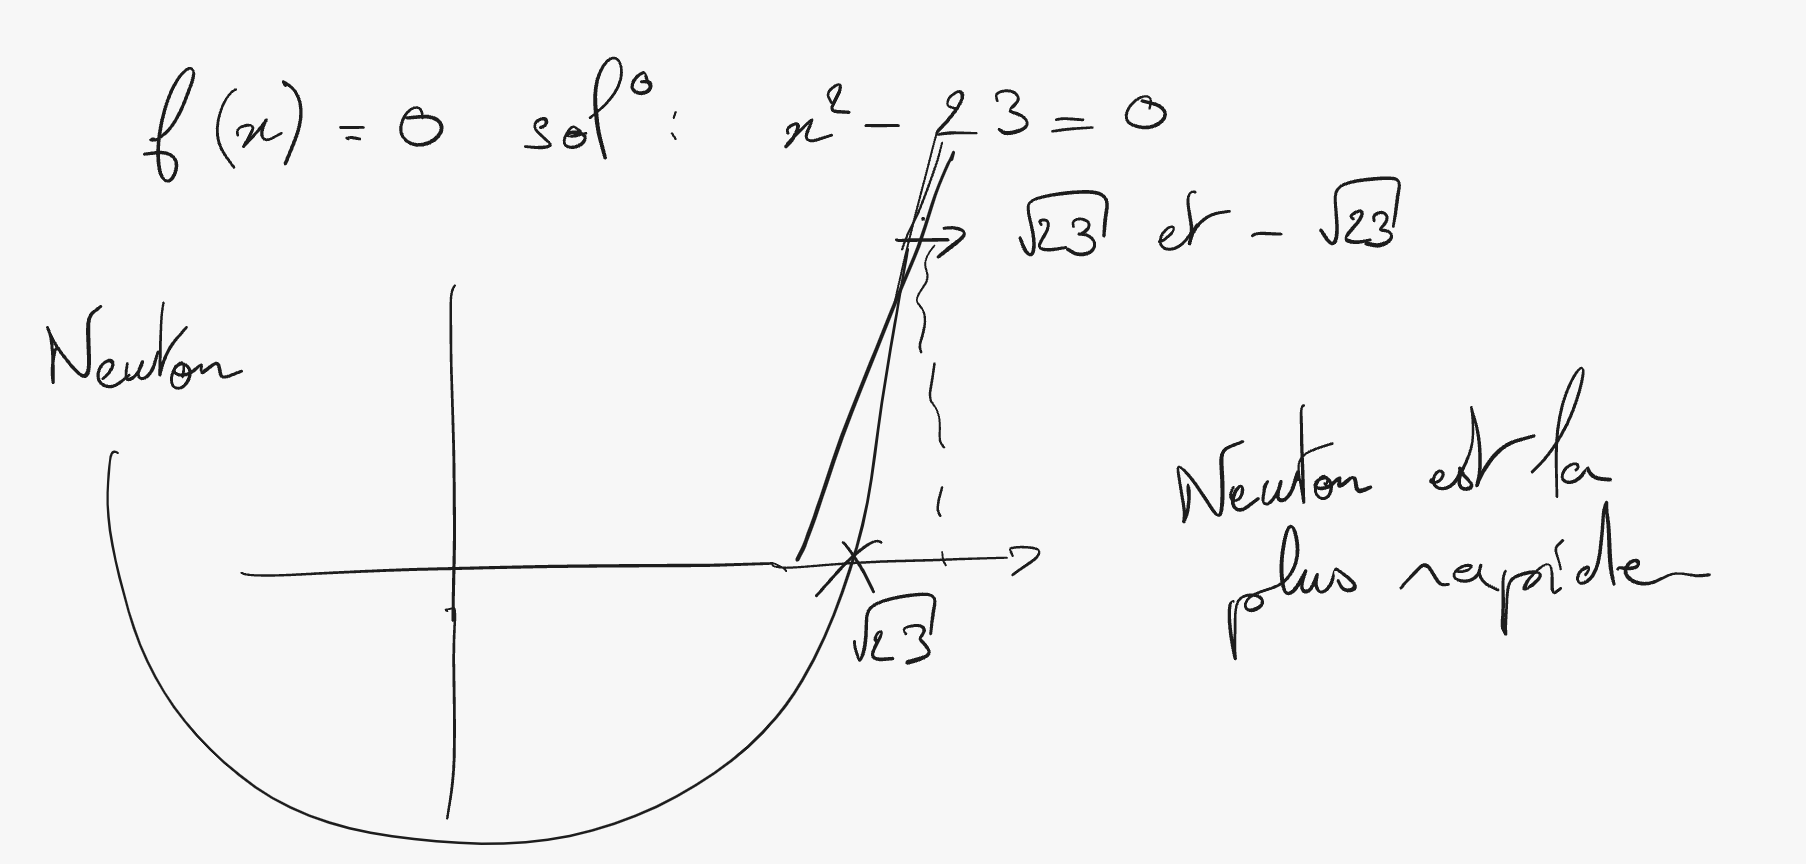 f(x) = 0 sol°: x² - 23 = 0
√23 et - √23
Newton
Newton est la
plus rapide
√23